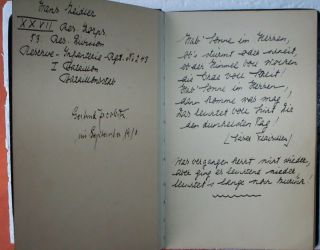 Hans Meidier
XXVII Res. Korps.
53 Res. Division
Reserve-Infanterie-Rgt. No. 243
I Bataillon
Bataillonsstab
Gertrud
im September 1918.
Hab' Sonne im Herzen,
ob's stürmt oder schneit,
ob der Himmel voll Wolken
die Erde voll Streit!
Hab' Sonne im Herzen
dann komme was mag
Das leuchtet voll Licht Dir
den dunkelsten Tag!
(Cäsar Flaischlen)
Was vergangen kehrt nicht wieder,
aber ging es leuchtend nieder
leuchtet's lange noch zurück!